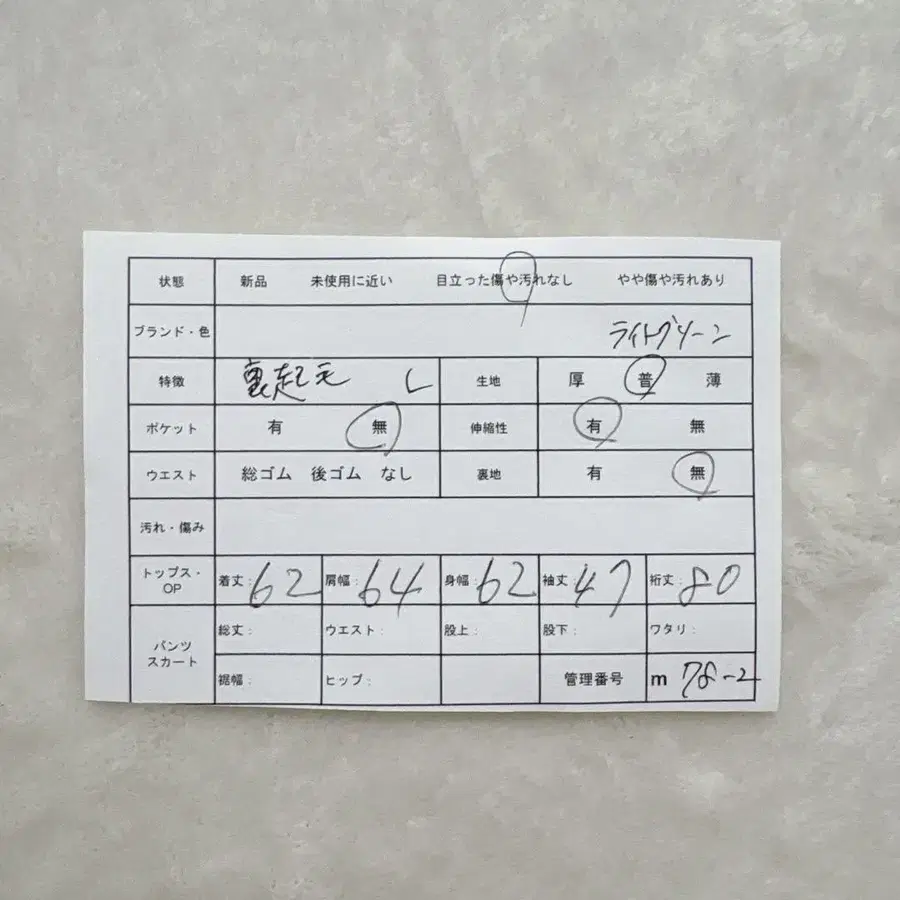 状態 新品 未使用に近い 目立った傷や汚れなし やや傷や汚れあり
ブランド・色 ライトグリーン
特徴 裏起毛 L 生地 厚 普 薄
ポケット 有 無 伸縮性 有 無
ウエスト 総ゴム 後ゴム なし 裏地 有 無
汚れ・傷み
トップス・OP 着丈:62 肩幅:64 身幅:62 袖丈:47 裄丈:80
パンツ スカート 総丈: ウエスト: 股上: 股下: ワタリ:
裾幅: ヒップ: 管理番号 m 78-2